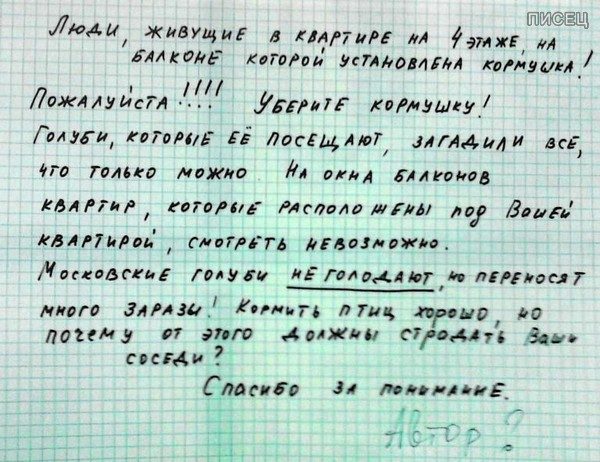 ПИСЕЦ
Люди, живущие в квартире на 4 этаже, на
балконе которой установлена кормушка!
Пожалуйста!!!! Уберите кормушку!
Голуби, которые её посещают, загадили все,
что только можно. На окна балконов
квартир, которые расположены под Вашей
квартирой, смотреть невозможно.
Московские голуби не голодают, но переносят
много заразы! Кормить птиц хорошо, но
почему от этого должны страдать Ваши
соседи?
Спасибо за понимание.
Автор?